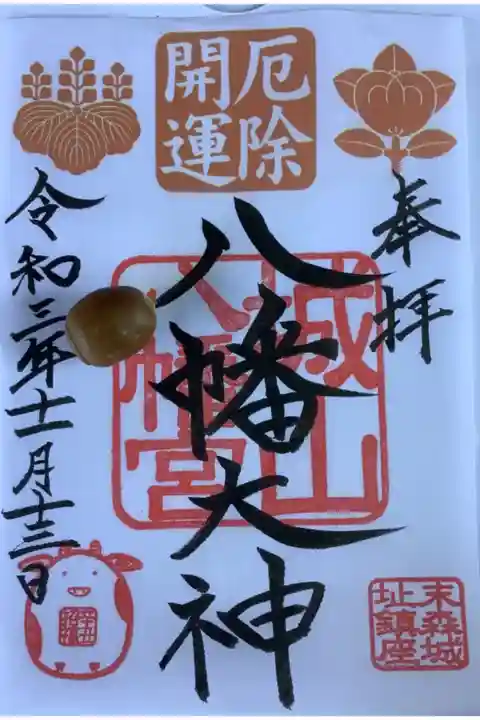 奉拝
厄除
開運
城山
八幡宮
八幡大神
末森城
址鎮座
令和三年十一月十三日